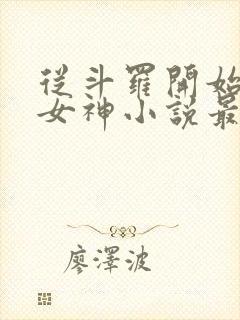 從斗羅開始
女神小說最
廖澤波